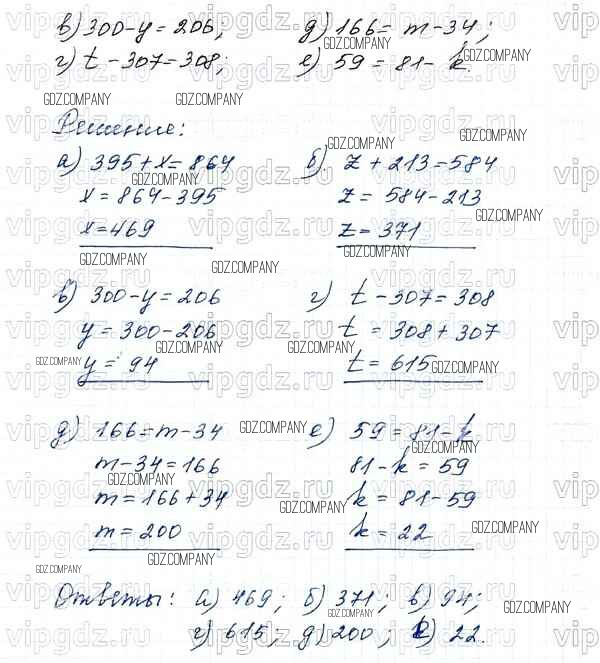 в) 300-y=206; д) 166= m-34;
г) t-307=308; е) 59 = 81-k.
Решение:
а) 395+x=864 б) z+213=584
x=864-395 z=584-213
x=469 z=371
в) 300-y=206 г) t-307=308
y=300-206 t=308+307
y=94 t=615
д) 166=m-34 е) 59=81-k
m-34=166 81-k=59
m=166+34 k=81-59
m=200 k=22
Ответы: а) 469; б) 371; в) 94;
г) 615; д) 200; е) 22.
vipgdz.ru
GDZ.COMPANY